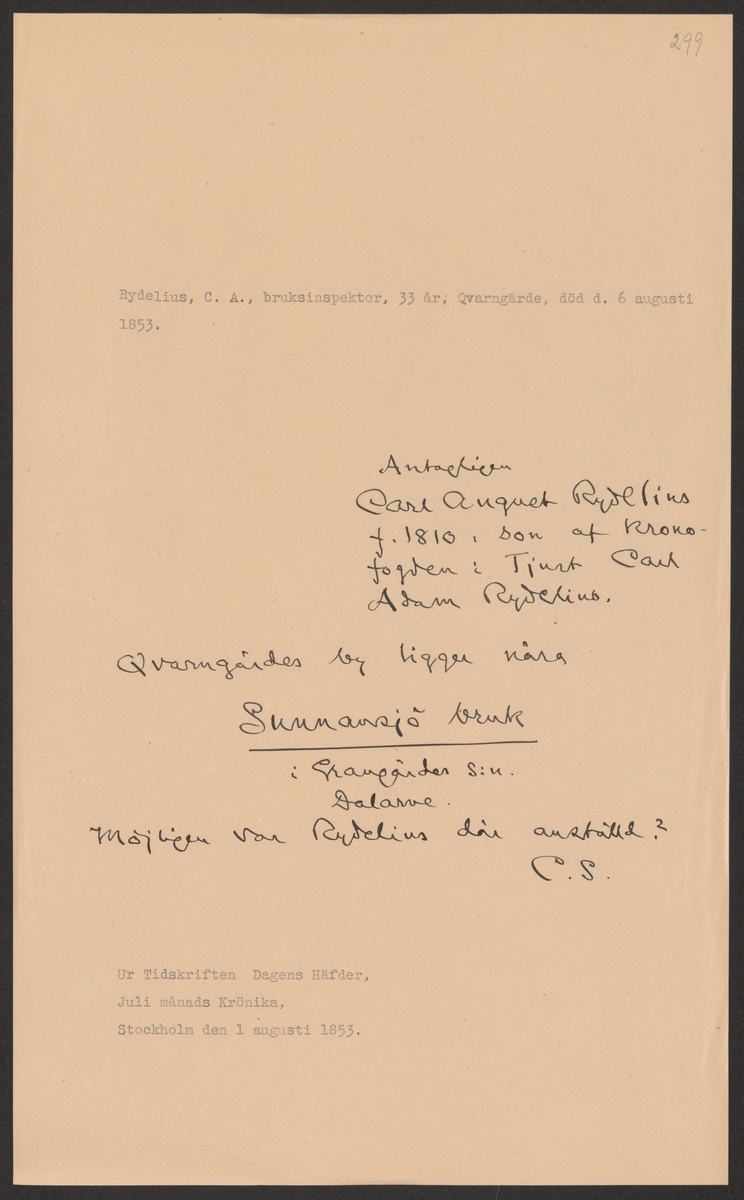 299
Rydelius, C. A., bruksinspektor, 33 år, Qvarngärde, död d. 6 augusti
1853.
Antagligen
Carl August Rydelius
f. 1810, son af krono-
fogden i Tjust Carl
Adam Rydelius.
Qvarngärdes by ligger nära
Sunnansjö bruk
i Grangärdes s:n.
Dalarne.
Möjligen var Rydelius där anställd?
C.S.
Ur Tidskriften Dagens Häfder,
Juli månads Krönika,
Stockholm den 1 augusti 1853.